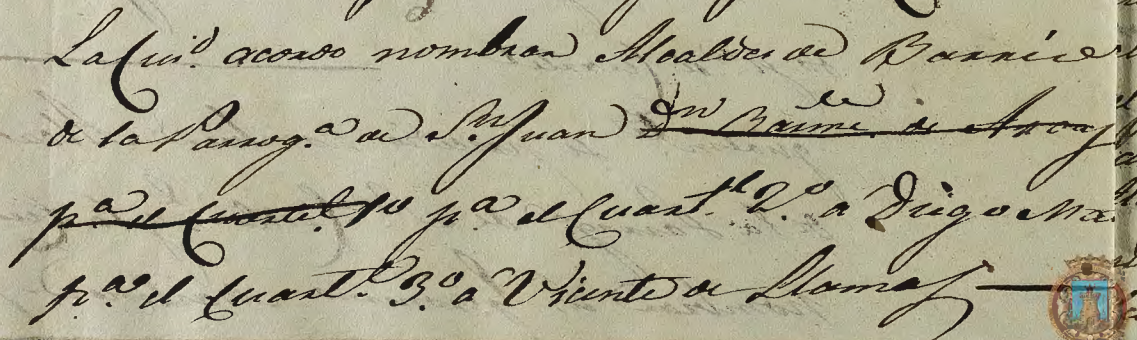 La Ciu.d acordo nombrar Alcaldes de Barrio
de la Parroq.a de S.n Juan D.n Barme. de
p.a el Cuartel 1o p.a el Cuart.l 2.o a Diego Ma
p.a el Cuart.l 3.o a Vicente de Llamas